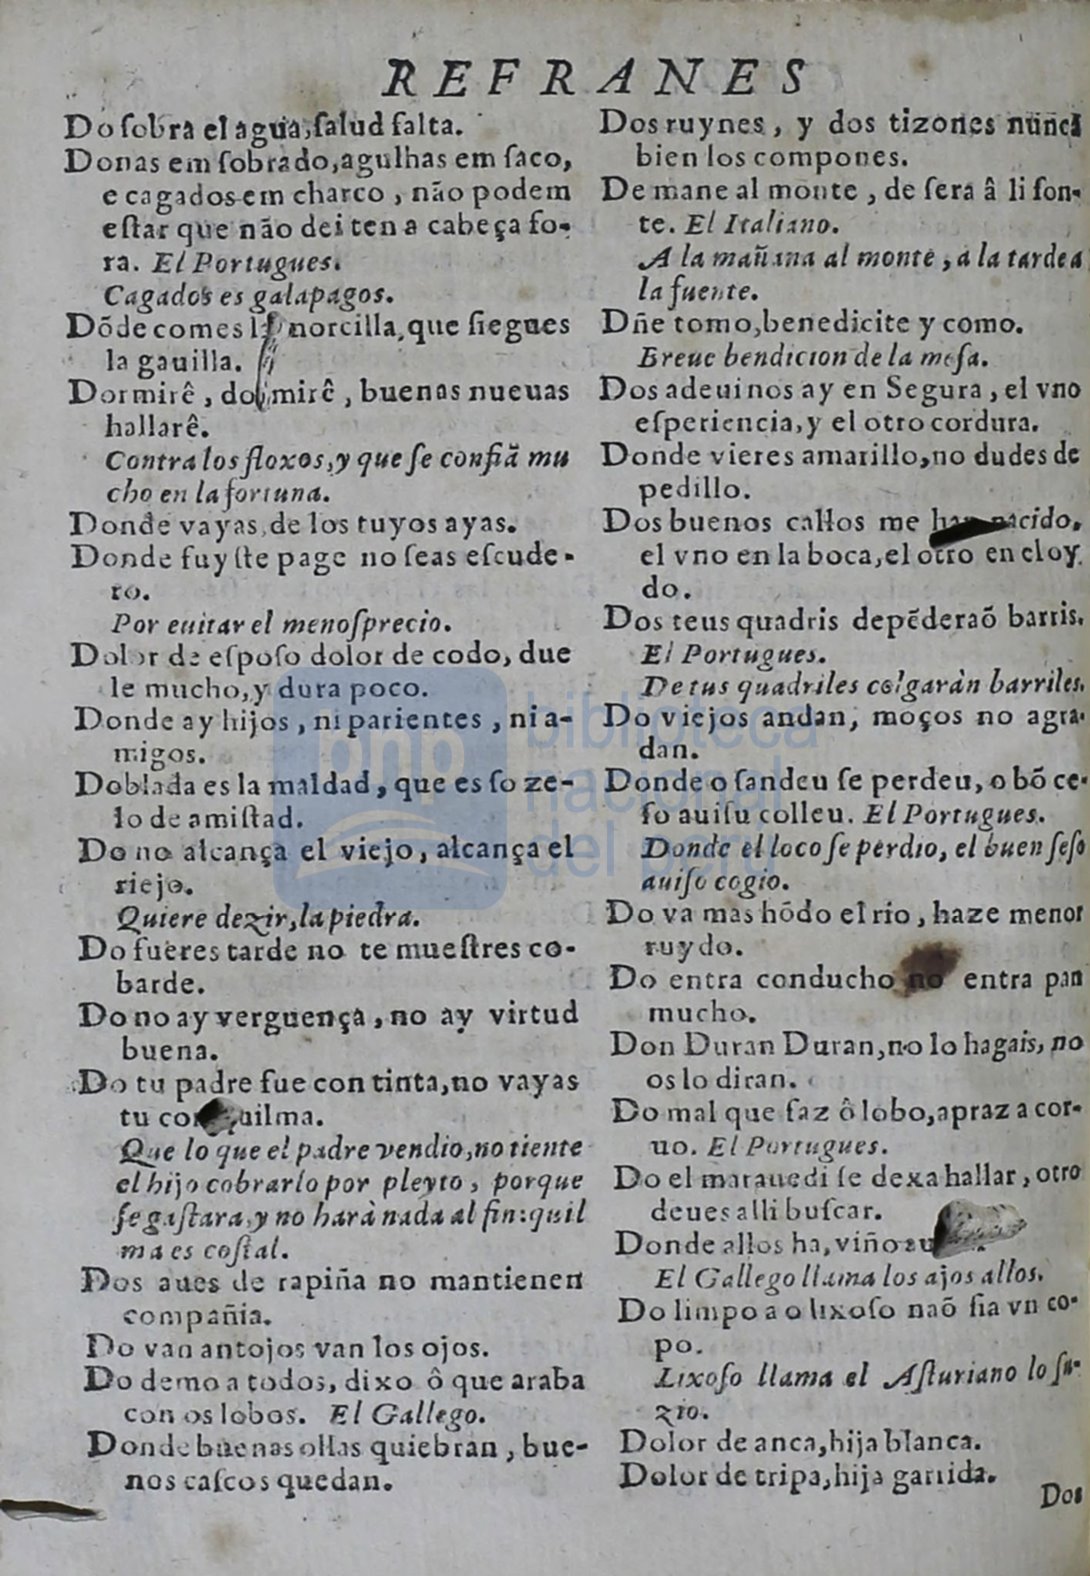 REFRANES
Do ſobra el agua, ſalud falta.
Donas em ſobrado, agulhas em ſaco,
e cagados em charco, não podem
eſtar que não deiten a cabeça fo-
ra. El Portugues.
Cagados es galapagos.
Dõde comes la morcilla, que ſiegues
la gauilla.
Dormirê, dormirê, buenas nueuas
hallarê.
Contra los floxos, y que ſe confiã mu
cho en la fortuna.
Donde vayas, de los tuyos ayas.
Donde fuyſte page no ſeas eſcude-
ro.
Por euitar el menoſprecio.
Dolor de eſpoſo dolor de codo, due
le mucho, y dura poco.
Donde ay hijos, ni parientes, ni a-
migos.
Doblada es la maldad, que es ſo ze-
lo de amiſtad.
Do no alcança el viejo, alcança el
riejo.
Quiere dezir, la piedra.
Do fueres tarde no te mueſtres co-
barde.
Do no ay verguença, no ay virtud
buena.
Do tu padre fue con tinta, no vayas
tu con quilma.
Que lo que el padre vendio, no tiente
el hijo cobrarlo por pleyto, porque
ſe gaſtara, y no harà nada al fin: quil
ma es coſtal.
Dos aues de rapiña no mantienen
compañia.
Do van antojos van los ojos.
Do demo a todos, dixo ô que araba
con os lobos. El Gallego.
Donde buenas ollas quiebran, bue-
nos caſcos quedan.
Dos ruynes, y dos tizones nũnca
bien los compones.
De mane al monte, de ſera â li fon-
te. El Italiano.
A la mañana al monte, a la tarde a
la fuente.
Dñe tomo, benedicite y como.
Breue bendicion de la meſa.
Dos adeuinos ay en Segura, el vno
eſperiencia, y el otro cordura.
Donde vieres amarillo, no dudes de
pedillo.
Dos buenos callos me han nacido,
el vno en la boca, el otro en el oy
do.
Dos teus quadris depẽderaõ barris.
El Portugues.
De tus quadriles colgaràn barriles.
Do viejos andan, moços no agra-
dan.
Donde o ſandeu ſe perdeu, o bõ ce-
ſo auiſu colleu. El Portugues.
Donde el loco ſe perdio, el buen ſeſo
auiſo cogio.
Do va mas hõdo el rio, haze menor
ruydo.
Do entra conducho no entra pan
mucho.
Don Duran Duran, no lo hagais, no
os lo diran.
Do mal que faz ô lobo, apraz a cor-
uo. El Portugues.
Do el marauedi ſe dexa hallar, otro
deues alli buſcar.
Donde allos ha, viño
El Gallego llama los ajos allos.
Do limpo a o lixoſo naõ ſia vn co-
po.
Lixoſo llama el Aſturiano lo ſu-
zio.
Dolor de anca, hija blanca.
Dolor de tripa, hija garrida.
Dos
biblioteca
nacional
del perú
bnp